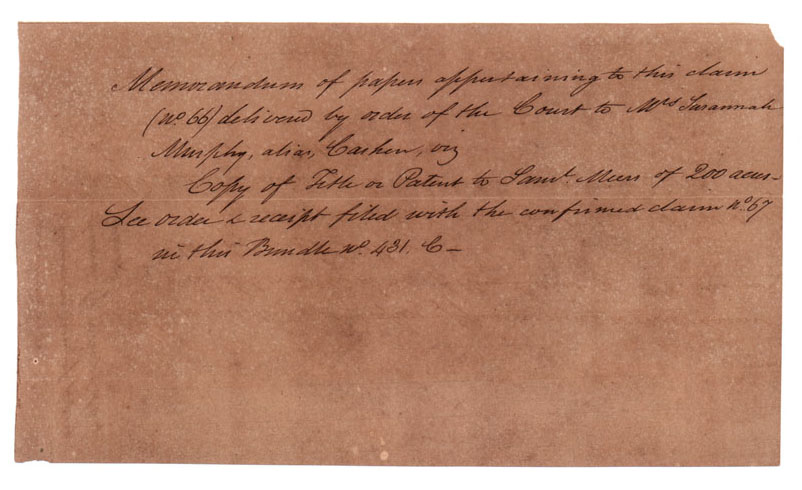 Memorandum of papers appertaining to this claim
(No. 66) delivered by order of the Court to Mrs Susannah
Murphy, alias, Cashen, viz
Copy of Title or Patent to Saml. Meers of 200 acres—
See order & receipt filed with the confirmed claim No. 67
in this Bundle No. 431. C—